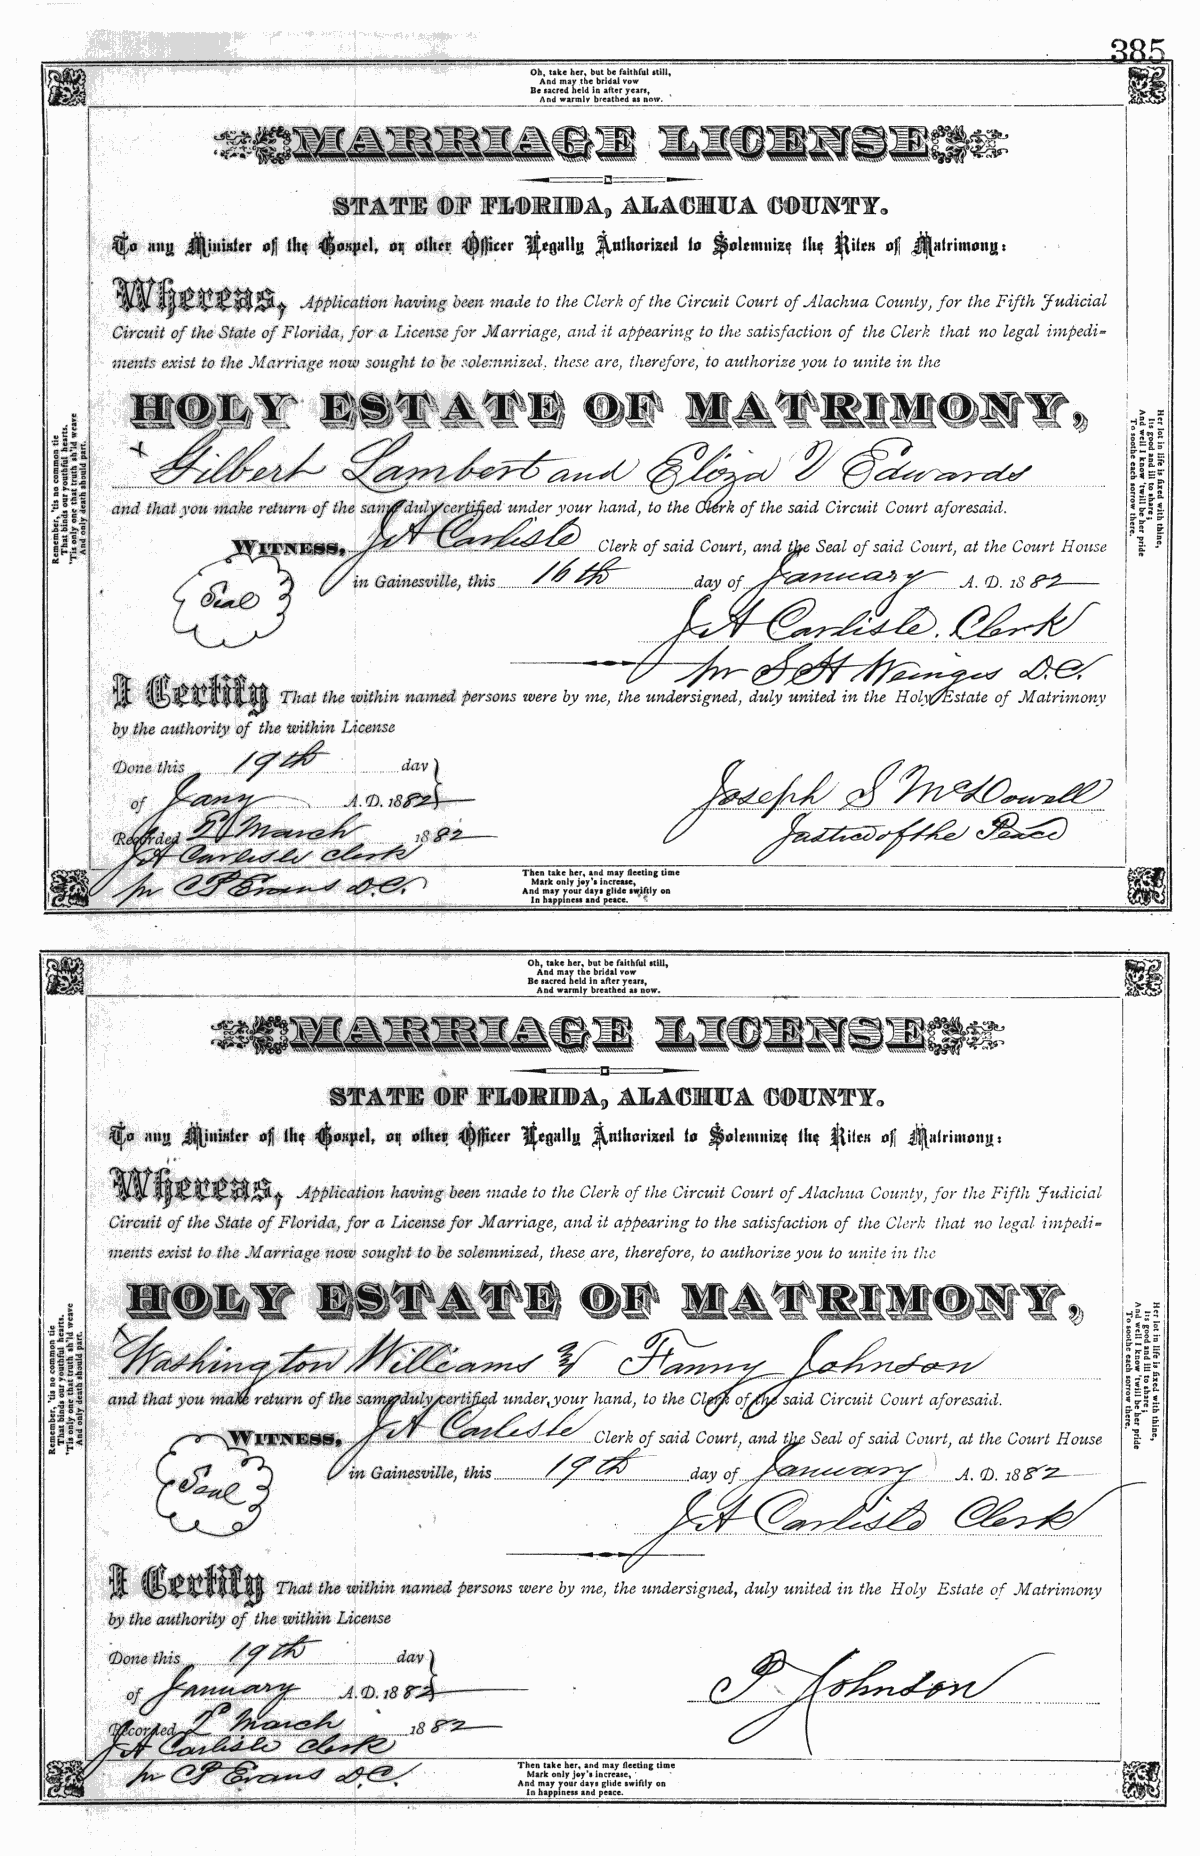 385
Oh, take her, but be faithful still,
And may the bridal vow
Be sacred held in after years,
And warmly breathed as now.
MARRIAGE LICENSE
STATE OF FLORIDA, ALACHUA COUNTY.
To any Minister of the Gospel, or other Officer Legally Authorized to Solemnize the Rites of Matrimony:
Whereas, Application having been made to the Clerk of the Circuit Court of Alachua County, for the Fifth Judicial
Circuit of the State of Florida, for a License for Marriage, and it appearing to the satisfaction of the Clerk that no legal impedi-
ments exist to the Marriage now sought to be solemnized, these are, therefore, to authorize you to unite in the
HOLY ESTATE OF MATRIMONY,
x Gilbert Lambert and Eliza V Edwards
and that you make return of the same duly certified under your hand, to the Clerk of the said Circuit Court aforesaid.
WITNESS, J A Carlisle Clerk of said Court, and the Seal of said Court, at the Court House
Seal
in Gainesville, this 16th day of January A. D. 1882
J A Carlisle. Clerk
pr S H Wienges D.C.
I Certify That the within named persons were by me, the undersigned, duly united in the Holy Estate of Matrimony
by the authority of the within License
Done this 19th day
of Jany A. D. 1882
Joseph S McDowell
Justice of the Peace
Recorded 2d March 1882
J A Carlisle clerk
pr C P Evans D.C.
Then take her, and may fleeting time
Mark only joy's increase,
And may your days glide swiftly on
In happiness and peace.
Remember, 'tis no common tie
That binds our youthful hearts,
'Tis only one that truth sh'ld weave
And only death should part.
Her lot in life is fixed with thine,
Its good and ill to share;
And well I know 'twill be her pride
To soothe each sorrow there.
Oh, take her, but be faithful still,
And may the bridal vow
Be sacred held in after years,
And warmly breathed as now.
MARRIAGE LICENSE
STATE OF FLORIDA, ALACHUA COUNTY.
To any Minister of the Gospel, or other Officer Legally Authorized to Solemnize the Rites of Matrimony:
Whereas, Application having been made to the Clerk of the Circuit Court of Alachua County, for the Fifth Judicial
Circuit of the State of Florida, for a License for Marriage, and it appearing to the satisfaction of the Clerk that no legal impedi-
ments exist to the Marriage now sought to be solemnized, these are, therefore, to authorize you to unite in the
HOLY ESTATE OF MATRIMONY,
x Washington Williams & Fanny Johnson
and that you make return of the same duly certified under your hand, to the Clerk of the said Circuit Court aforesaid.
WITNESS, J A Carlisle Clerk of said Court, and the Seal of said Court, at the Court House
Seal
in Gainesville, this 19th day of January A. D. 1882
J A Carlisle Clerk
I Certify That the within named persons were by me, the undersigned, duly united in the Holy Estate of Matrimony
by the authority of the within License
Done this 19th day
of January A. D. 1882
P Johnson
Recorded 2d March 1882
J A Carlisle clerk
pr C P Evans D.C.
Then take her, and may fleeting time
Mark only joy's increase,
And may your days glide swiftly on
In happiness and peace.
Remember, 'tis no common tie
That binds our youthful hearts,
'Tis only one that truth sh'ld weave
And only death should part.
Her lot in life is fixed with thine,
Its good and ill to share;
And well I know 'twill be her pride
To soothe each sorrow there.